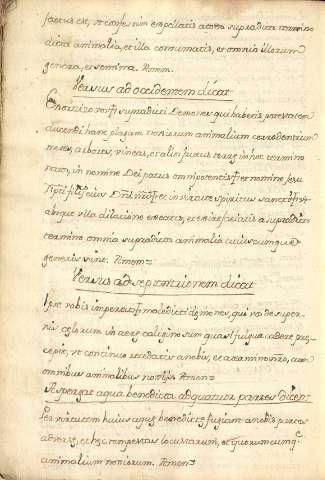 factus est, ut confestim expellatis a toto supradicto termino
dicta animalia, et illa comumatis, et omnia illorum
genera, et semina. Amen.
Versus ad occidentem dicat
Exorcizo vos supradicti Demones qui habetis potestatem
ducendi hanc plagam noxiorum animalium corrodentium
messes, arbores, vineas, et alios fructus terræ in hoc termino
in nomine Dei patris omnipotentis et nomine Jesu
filii eius et in virtute spiritus sancti
absque ulla dilacione exeatis, et exire faciatis a supradicto
termino omnia supradicta animalia cuiuscumque
generis sunt. Amen=
Versus ad septentrionem dicat
Ipse vobis imperat maledicti demones, qui vos de super-
nis cælorum in aere caliginosum quasi fulgura cadere præ-
cepit, ut continuo recedatis a nobis, et a termino nro, cum
omnibus animalibus noxijs. Amen=
Aspergat aqua benedicta ad quatuor partes dicens
Per virtutem huius aquæ benedictæ fugiant a nobis partes
adversæ, et hec tempestas locustarum, et quorumcumq
animalium noxiorum. Amen=